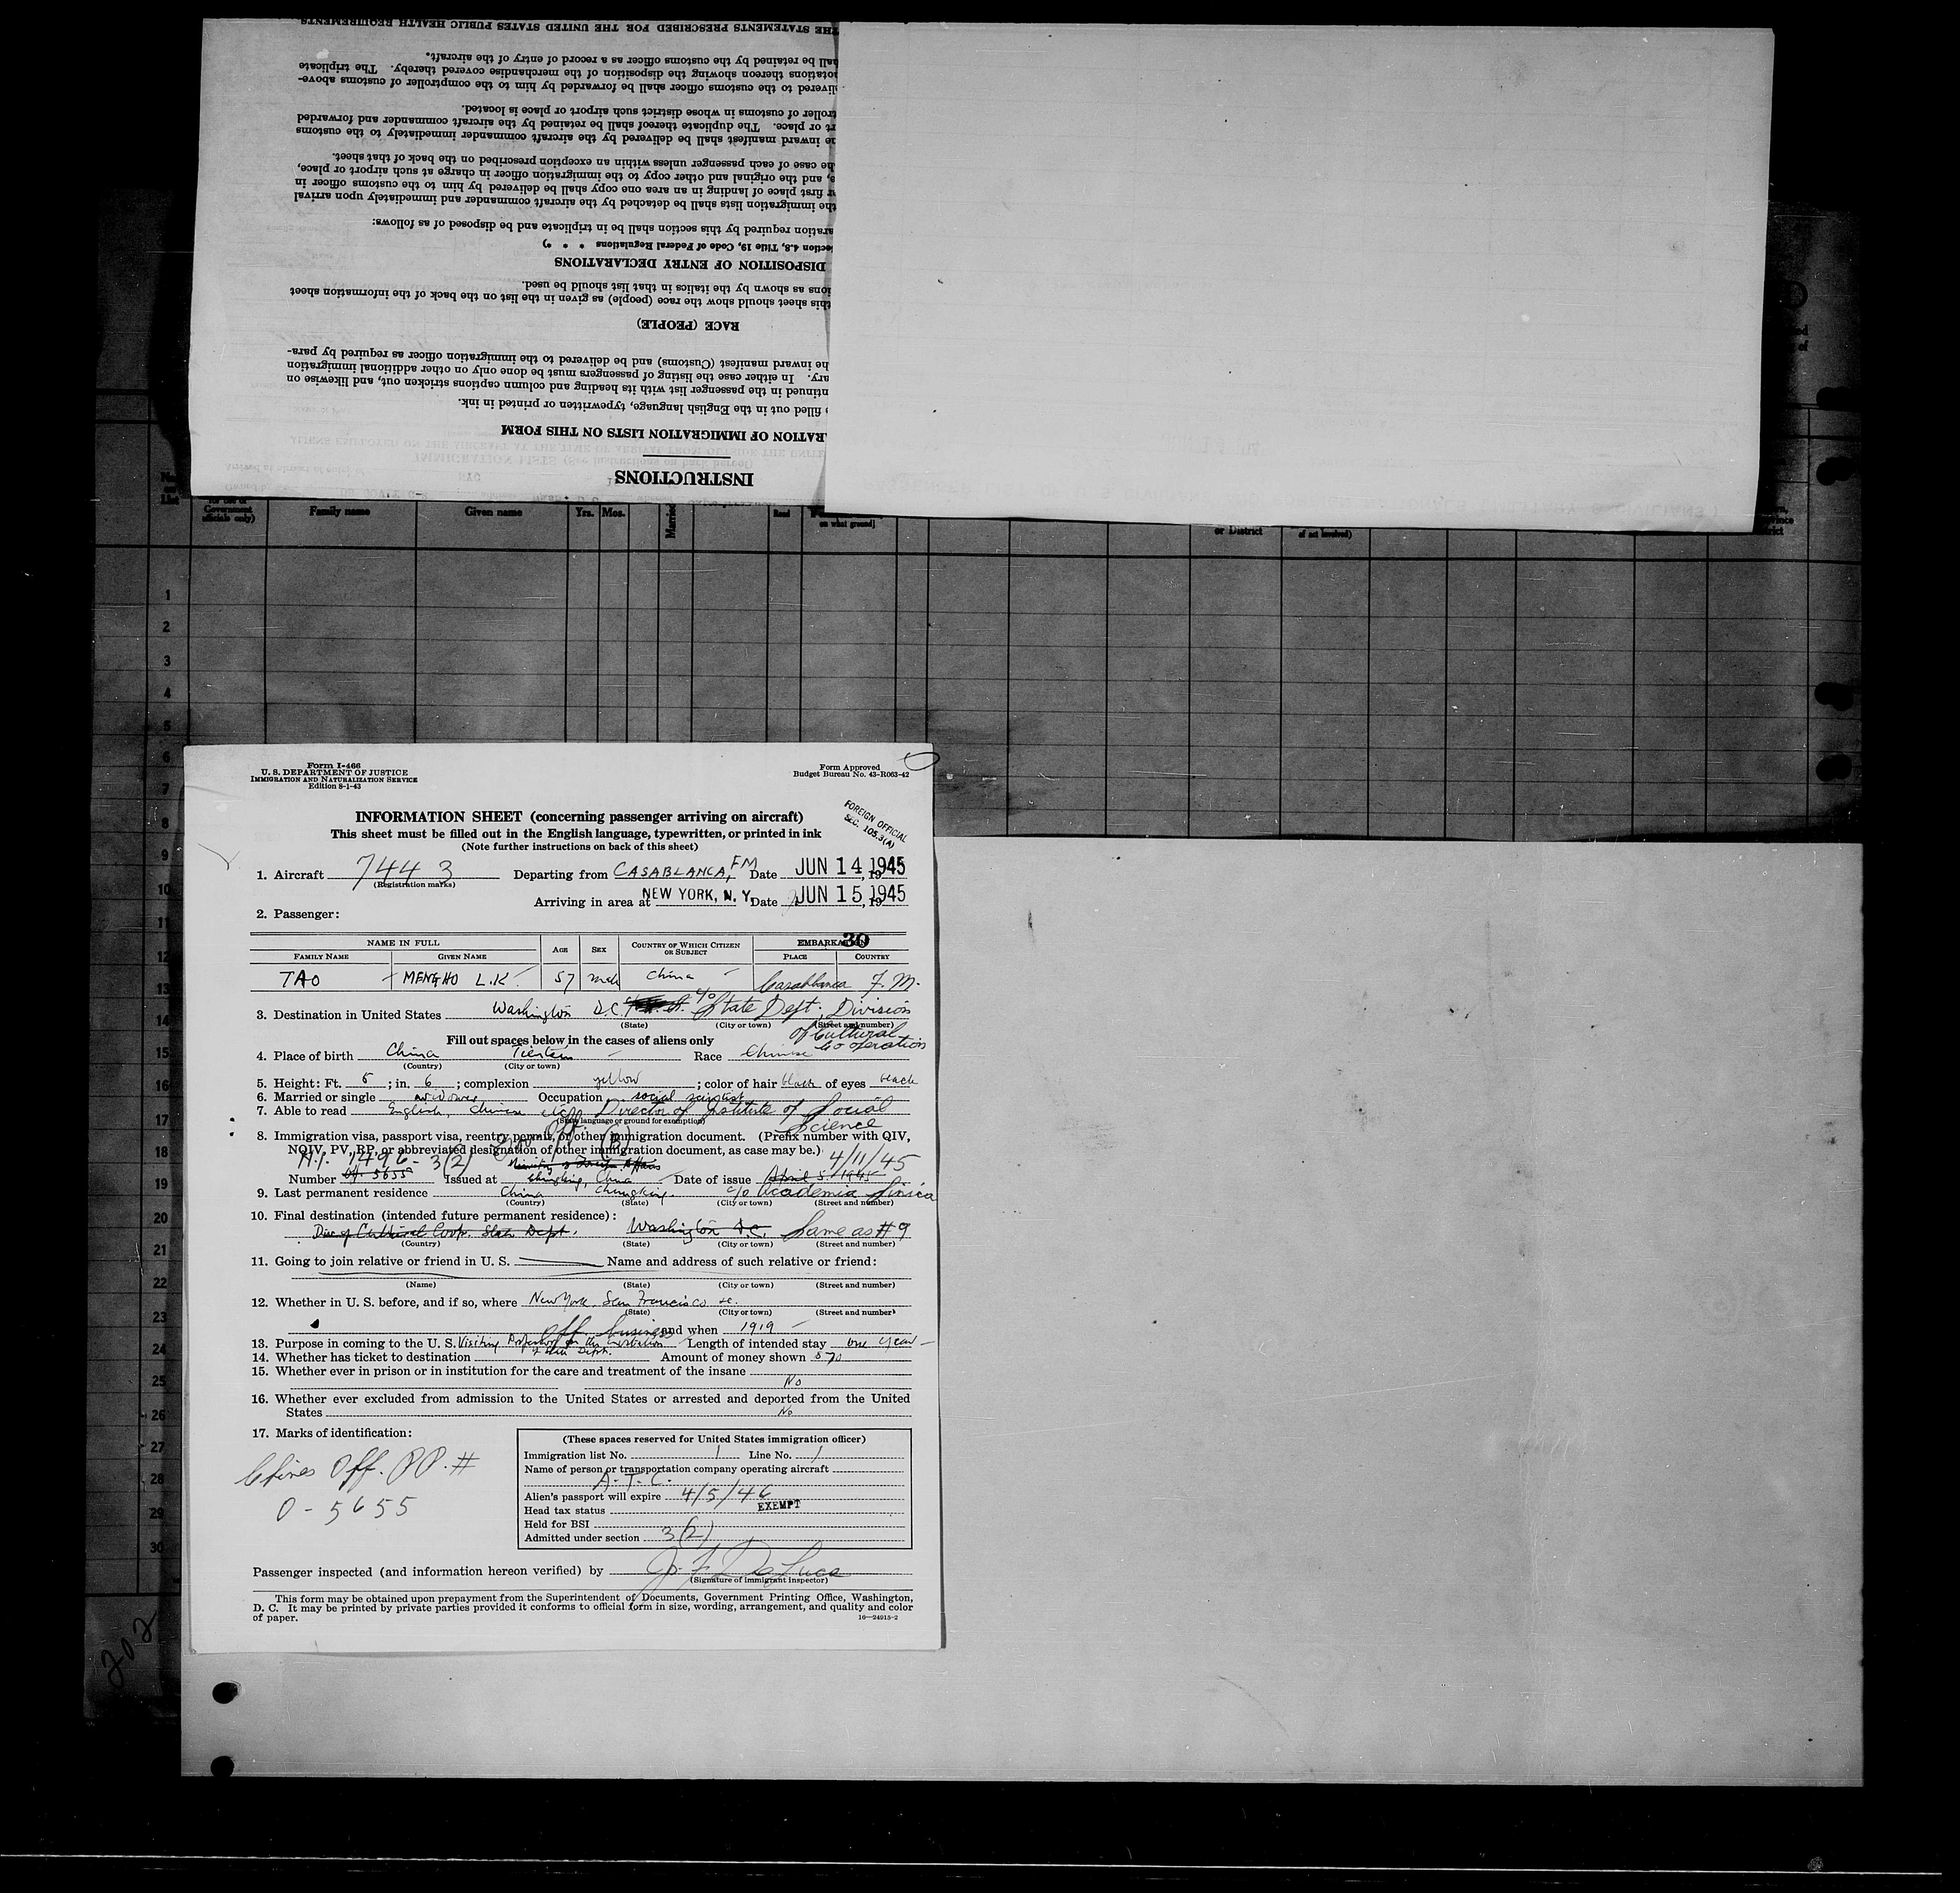 THE STATEMENTS PRESCRIBED FOR THE UNITED STATES PUBLIC HEALTH REQUIREMENTS
all be retained by the customs officer as a record of entry of the aircraft.
otations thereon showing the disposition of the merchandise covered thereby. The triplicate
livered to the customs officer shall be forwarded by him to the comptroller of customs above-
troller of customs in whose district such airport or place is located.
rt or place. The duplicate thereof shall be retained by the aircraft commander and forwarded
he inward manifest shall be delivered by the aircraft commander immediately to the customs
he case of each passenger unless within an exception prescribed on the back of that sheet.
e, and the original and other copy to the immigration officer in charge at such airport or place,
r first place of landing in an area one copy shall be delivered by him to the customs officer in
the immigration lists shall be detached by the aircraft commander and immediately upon arrival
aration required by this section shall be in triplicate and be disposed of as follows:
ection 4.8, Title 19, Code of Federal Regulations * * *)
DISPOSITION OF ENTRY DECLARATIONS
ions as shown by the italics in that list should be used.
this sheet should show the race (people) as given in the list on the back of the information sheet
RACE (PEOPLE)
he inward manifest (Customs) and be delivered to the immigration officer as required by para-
ary. In either case the listing of passengers must be done only on other additional immigration
ntinued in the passenger list with its heading and column captions stricken out, and likewise on
filled out in the English language, typewritten or printed in ink.
RATION OF IMMIGRATION LISTS ON THIS FORM
INSTRUCTIONS
Government officials only) Family name Given name Yrs. Mos. Married Read on what ground] or District of act involved)
1
2
3
4
5
6
7
8
9
10
11
12
13
14
15
16
17
18
19
20
21
22
23
24
25
26
27
28
29
30
202
Form I-466
U. S. DEPARTMENT OF JUSTICE
IMMIGRATION AND NATURALIZATION SERVICE
Edition 8-1-43
Form Approved
Budget Bureau No. 43-R063-42
INFORMATION SHEET (concerning passenger arriving on aircraft)
This sheet must be filled out in the English language, typewritten, or printed in ink
(Note further instructions on back of this sheet)
FOREIGN OFFICIAL
SEC. 105.3(A)
1. Aircraft 7443 Departing from CASABLANCA, FM Date JUN 14, 1945
(Registration marks)
Arriving in area at NEW YORK, N. Y. Date JUN 15, 1945
2. Passenger:
NAME IN FULL AGE SEX COUNTRY OF WHICH CITIZEN OR SUBJECT EMBARKATION 30
FAMILY NAME GIVEN NAME PLACE COUNTRY
TAO MENGHO L.K. 57 male China Casablanca F.M.
3. Destination in United States Washington D.C. c/o State Dept. Division
(State) (City or town) (Street and number)
of Cultural
Cooperation
Fill out spaces below in the cases of aliens only
4. Place of birth China Tientsin Race Chinese
(Country) (City or town)
5. Height: Ft. 5; in. 6; complexion yellow; color of hair black of eyes black
6. Married or single widower Occupation social scientist
7. Able to read English, Chinese Director of Institute of Social
(State language or ground for exemption)
Science
8. Immigration visa, passport visa, reentry permit, or other immigration document. (Prefix number with QIV,
NQIV, PV, RP, or abbreviated designation of other immigration document, as case may be.)
1496 - 3(2) Ministry of Foreign Affairs 4/11/45
Number 5655 Issued at Chungking, China Date of issue April 5, 1945
9. Last permanent residence China Chungking c/o Academia Sinica
(Country) (State) (City or town) (Street and number)
10. Final destination (intended future permanent residence):
Div. of Cultural Coop. State Dept. Washington D.C. Same as #9
(Country) (State) (City or town) (Street and number)
11. Going to join relative or friend in U. S. Name and address of such relative or friend:
(Name) (State) (City or town) (Street and number)
12. Whether in U. S. before, and if so, where New York, San Francisco etc.
(State) (City or town) (Street and number)
off. business and when 1919
13. Purpose in coming to the U. S. Visiting Length of intended stay one year
State Dept.
14. Whether has ticket to destination Amount of money shown 570
15. Whether ever in prison or in institution for the care and treatment of the insane
No
16. Whether ever excluded from admission to the United States or arrested and deported from the United
States No
17. Marks of identification:
Chines Off. PP. #
O - 5655
(These spaces reserved for United States immigration officer)
Immigration list No. 1 Line No. 1
Name of person or transportation company operating aircraft
A. T. C.
Alien's passport will expire 4/5/46
Head tax status EXEMPT
Held for BSI
Admitted under section 3(2)
Passenger inspected (and information hereon verified) by J. F. De Luca
(Signature of immigrant inspector)
This form may be obtained upon prepayment from the Superintendent of Documents, Government Printing Office, Washington,
D. C. It may be printed by private parties provided it conforms to official form in size, wording, arrangement, and quality and color
of paper. 16—24915-2